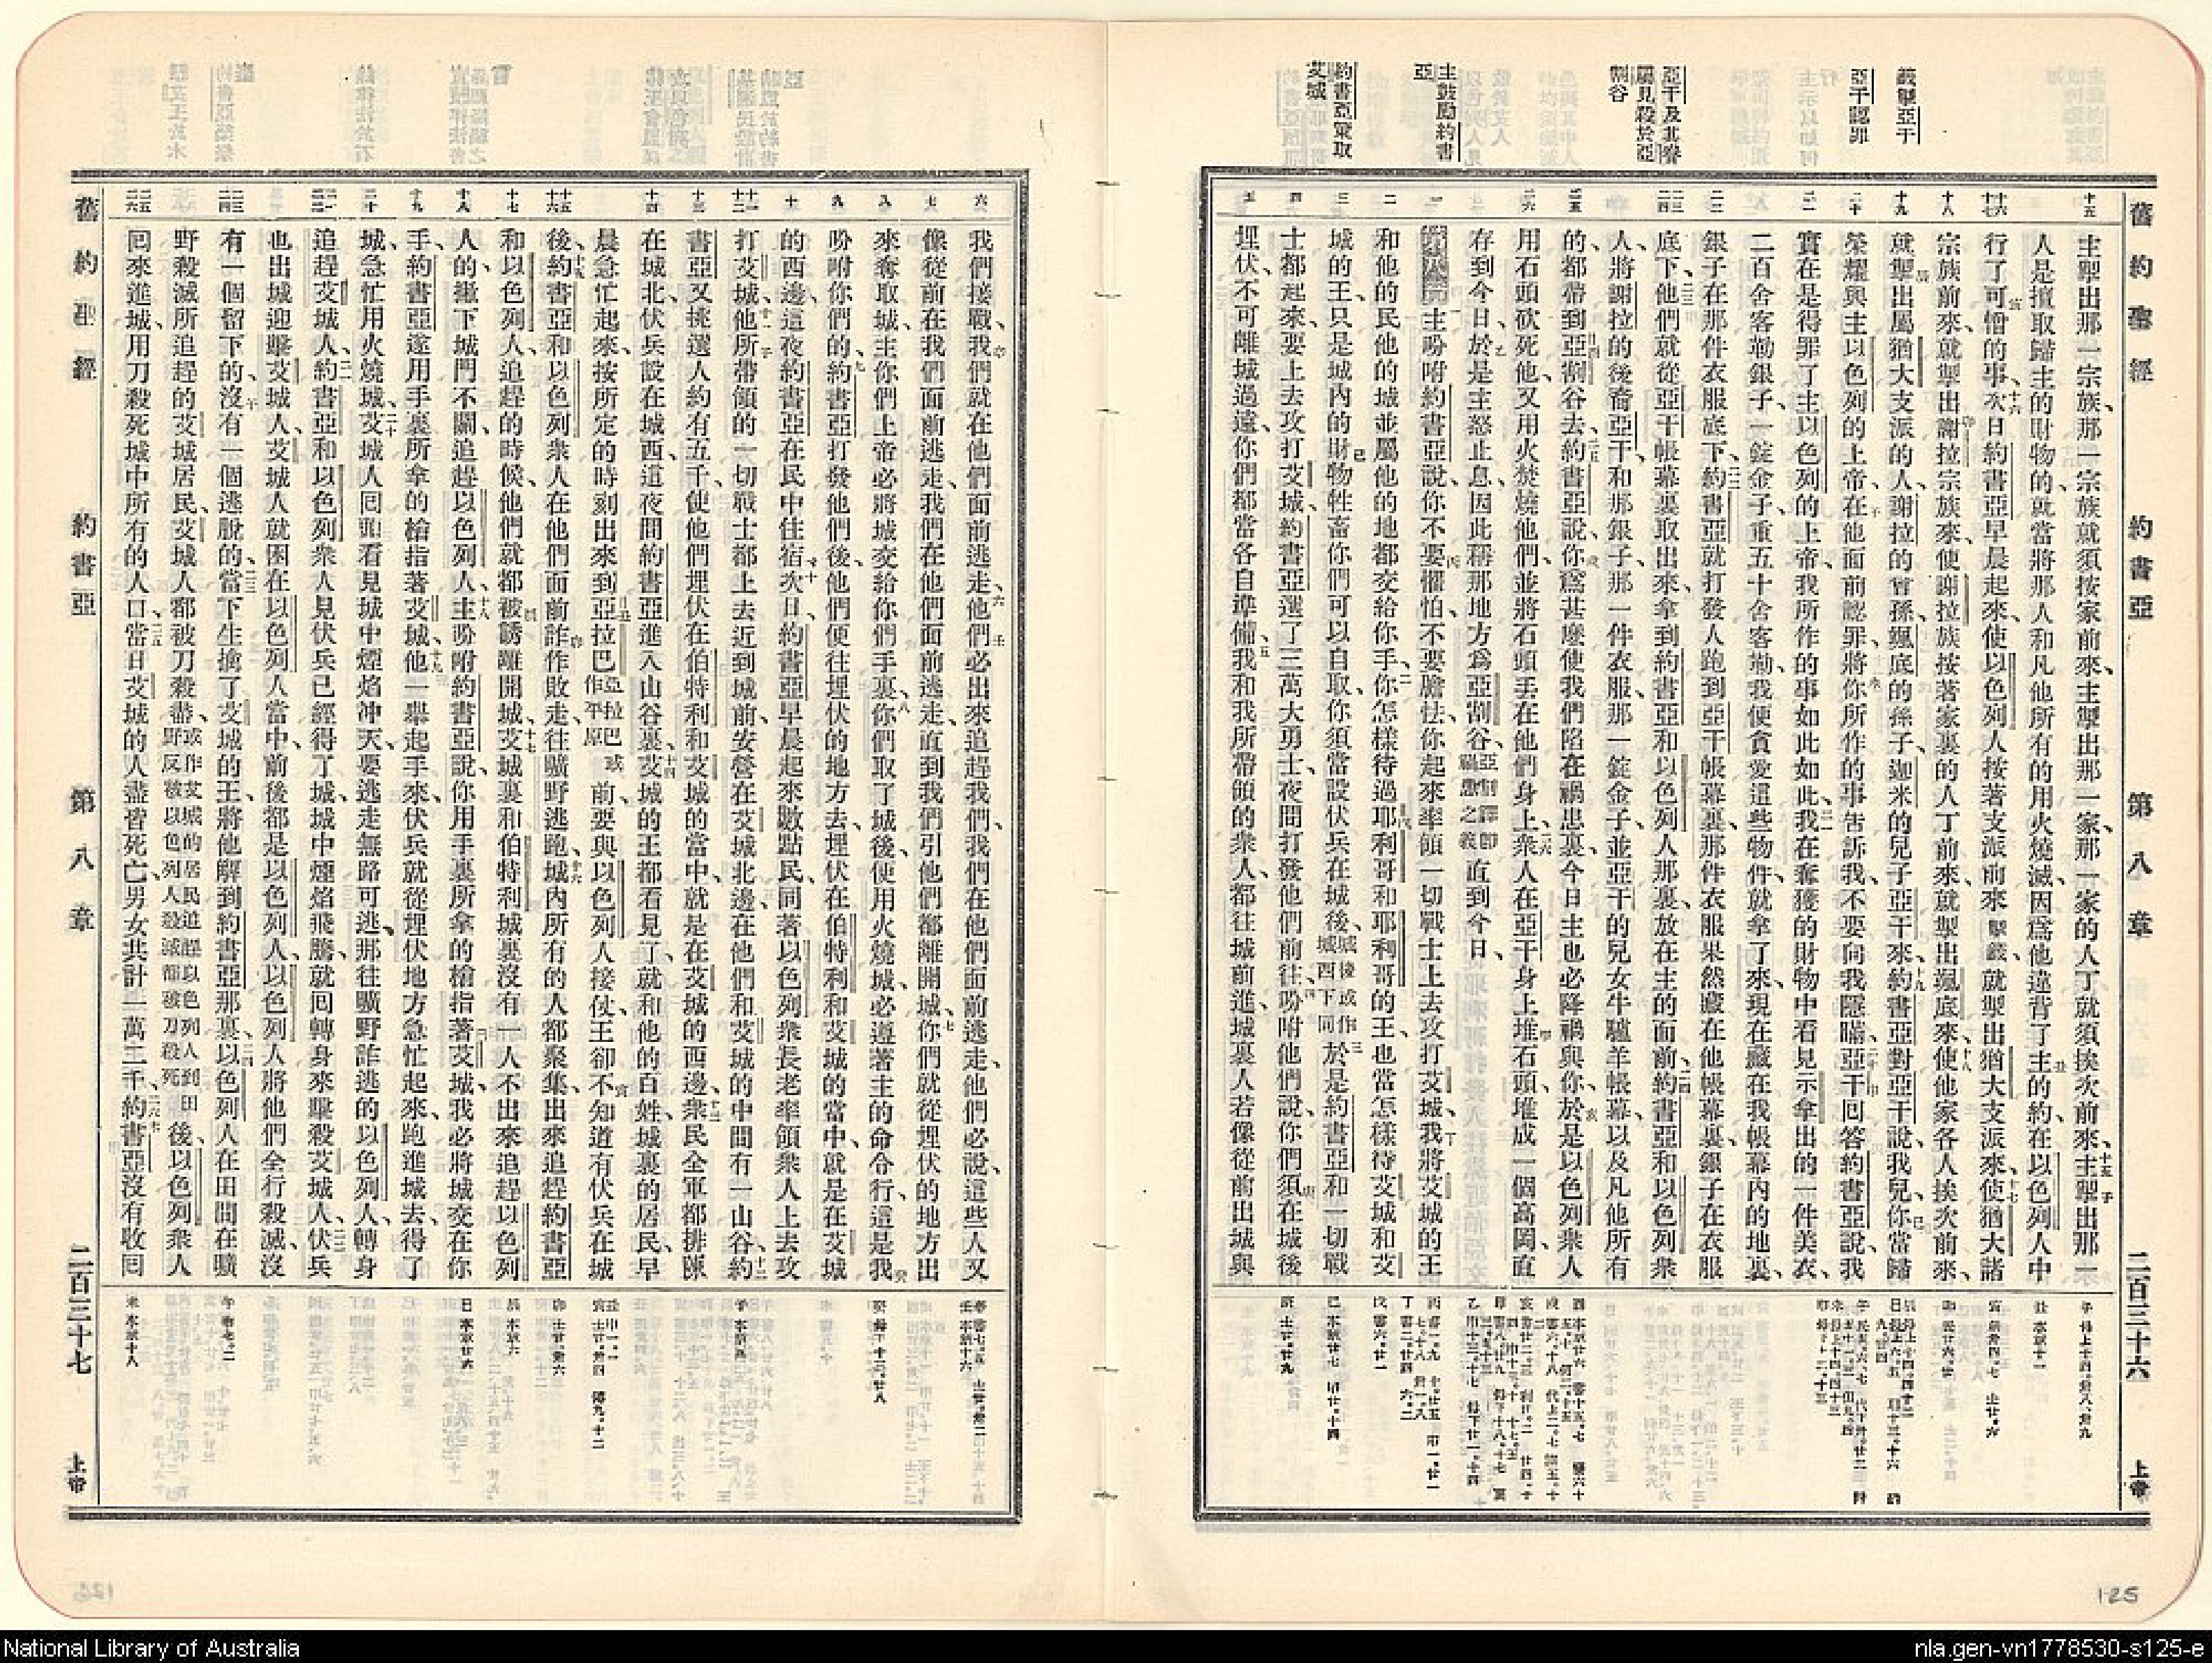 舊約聖經 約書亞 第八章 二百三十六 上帝
籤掣亞干
亞干認罪
亞干及其眷屬見殺於亞割谷
主鼓勵約書亞
約書亞策取艾城
主掣出那一宗族、那一宗族就須按家前來、主掣出那一家、那一家的人丁就須挨次前來、主掣出那一
人是擅取歸主的財物的、就當將那人和凡他所有的用火燒滅、因為他違背了主的約、在以色列人中
行了可憎的事、次日約書亞早晨起來、使以色列人按著支派前來掣籤就掣出猶大支派來、使猶大諸
宗族前來、就掣出謝拉宗族來、使謝拉族按著家裏的人丁前來、就掣出颯底來、使他家各人挨次前來、
就掣出屬猶大支派的人、謝拉的曾孫、颯底的孫子、迦米的兒子亞干來、約書亞對亞干說、我兒、你當歸
榮耀與主以色列的上帝、在他面前認罪、將你所作的事告訴我、不要向我隱瞞、亞干回答約書亞說、我
實在是得罪了主以色列的上帝、我所作的事如此如此、我在奪獲的財物中看見示拿出的一件美衣、
二百舍客勒銀子、一錠金子、重五十舍客勒、我便貪愛這些物件、就拿了來、現在藏在我帳幕內的地裏、
銀子在那件衣服底下、約書亞就打發人跑到亞干帳幕裏、那件衣服果然藏在他帳幕裏、銀子在衣服
底下、他們就從亞干帳幕裏取出來、拿到約書亞和以色列人那裏、放在主的面前、約書亞和以色列衆
人、將謝拉的後裔亞干、和那銀子、那一件衣服、那一錠金子、並亞干的兒女牛驢羊帳幕、以及凡他所有
的、都帶到亞割谷去、約書亞說、你為甚麼使我們陷在禍患裏、今日主也必降禍與你、於是以色列衆人
用石頭砍死他、又用火焚燒他們、並將石頭丟在他們身上、衆人在亞干身上堆石頭、堆成一個高岡、直
存到今日、於是主怒止息、因此稱那地方為亞割谷、亞割譯卽禍患之義直到今日、
主吩咐約書亞說、你不要懼怕、不要膽怯、你起來率領一切戰士上去攻打艾城、我將艾城的王
和他的民、他的城、並屬他的地、都交給你手、你怎樣待過耶利哥和耶利哥的王、也當怎樣待艾城和艾
城的王、只是城內的財物牲畜、你們可以自取、你須當設伏兵在城後、城後或作城西下同於是約書亞和一切戰
士都起來、要上去攻打艾城、約書亞選了三萬大勇士、夜間打發他們前往、吩咐他們說、你們須在城後
埋伏、不可離城過遠、你們都當各自準備、我和我所帶領的衆人、都往城前進、城裏人若像從前出城與
125
我們接戰、我們就在他們面前逃走、他們必出來追趕我們、我們在他們面前逃走、他們必說、這些人又
像從前在我們面前逃走、我們在他們面前逃走、直到我們引他們都離開城、你們就從埋伏的地方出
來奪取城、主你們上帝必將城交給你們手裏、你們取了城後、便用火燒城、必遵著主的命令行、這是我
吩咐你們的、約書亞打發他們後、他們便往埋伏的地方去、埋伏在伯特利和艾城的當中、就是在艾城
的西邊、這夜約書亞在民中住宿、次日、約書亞早晨起來數點民、同著以色列衆長老率領衆人上去攻
打艾城、他所帶領的一切戰士都上去近到城前、安營在艾城北邊、在他們和艾城的中間有一山谷、約
書亞又挑選人約有五千、使他們埋伏在伯特利和艾城的當中、就是在艾城的西邊、衆民全軍都排陳
在城北、伏兵設在城西、這夜間約書亞進入山谷裏、艾城的王都看見了、就和他的百姓、城裏的居民、早
晨急忙起來、按所定的時刻出來到亞拉巴亞拉巴或作平原前、要與以色列人接仗、王卻不知道有伏兵在城
後、約書亞和以色列衆人在他們面前詐作敗走、往曠野逃跑、城內所有的人都聚集出來追趕約書亞
和以色列人、追趕的時候、他們就都被誘離開城、艾城裏和伯特利城裏沒有一人不出來追趕以色列
人的、撇下城門不關、追趕以色列人、主吩咐約書亞說、你用手裏所拿的槍指著艾城、我必將城交在你
手、約書亞遂用手裏所拿的槍指著艾城、他一舉起手來、伏兵就從埋伏地方急忙起來、跑進城去、得了
城、急忙用火燒城、艾城人回頭看見城中煙焰沖天、要逃走無路可逃、那往曠野詐逃的以色列人、轉身
追趕艾城人、約書亞和以色列衆人見伏兵已經得了城、城中煙焰飛騰、就回轉身來擊殺艾城人、伏兵
也出城迎擊艾城人、艾城人就困在以色列人當中、前後都是以色列人、以色列人將他們全行殺滅、沒
有一個留下的、沒有一個逃脫的、當下生擒了艾城的王、將他解到約書亞那裏、以色列人在田間在曠
野殺滅所追趕的艾城居民、艾城人都被刀殺盡、或作艾城的居民追趕以色列人到田野反被以色列人殺滅都被刀殺死後、以色列衆人
回來進城、用刀殺死城中所有的人口、當日艾城的人盡皆死亡、男女共計一萬二千、約書亞沒有收回
舊約聖經 約書亞 第八章 二百三十七 上帝
National Library of Australia
nla.gen-vn1778530-s125-e